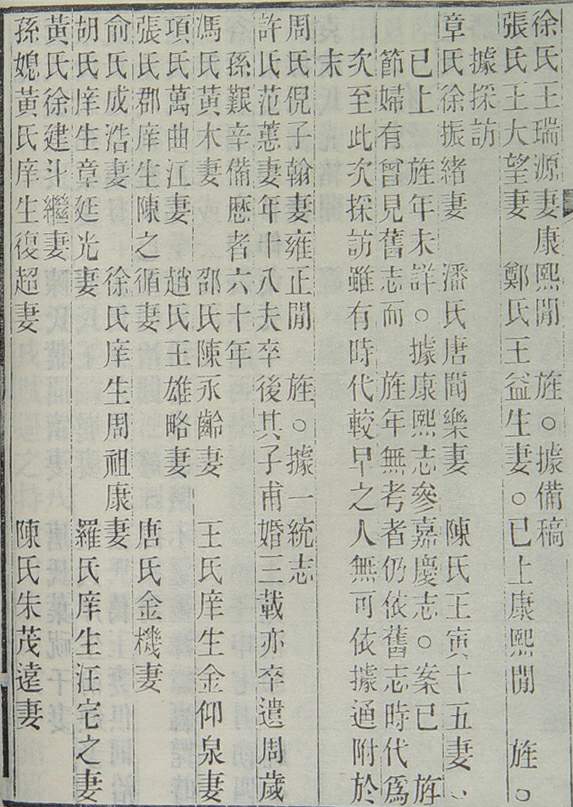 徐氏王瑞源妻康熙閒 旌○據備稿
張氏王大望妻 鄭氏王益生妻○已上康熙閒 旌○
據採訪
章氏徐振緒妻 潘氏唐閶樂妻 陳氏王寅十五妻
已上 旌年未詳○據康熙志參嘉慶志○案已 旌
節婦有曾見舊志而 旌年無考者仍依舊志時代爲
次至此次採訪雖有時代較早之人無可依據通附於
末
周氏倪子翰妻雍正閒 旌○據一統志
許氏范蕙妻年十八夫卒後其子甫婚三載亦卒遺周歲
孫艱辛備歷者六十年
馮氏黃木妻 邵氏陳永齡妻 王氏庠生金仰泉妻
項氏萬曲江妻 趙氏王雄略妻 唐氏金機妻
張氏郡庠生陳之循妻
俞氏成浩妻 徐氏庠生周祖康妻
胡氏庠生章延光妻 羅氏庠生汪宅之妻
黃氏徐建斗繼妻
孫媳黃氏庠生復超妻 陳氏朱茂遠妻